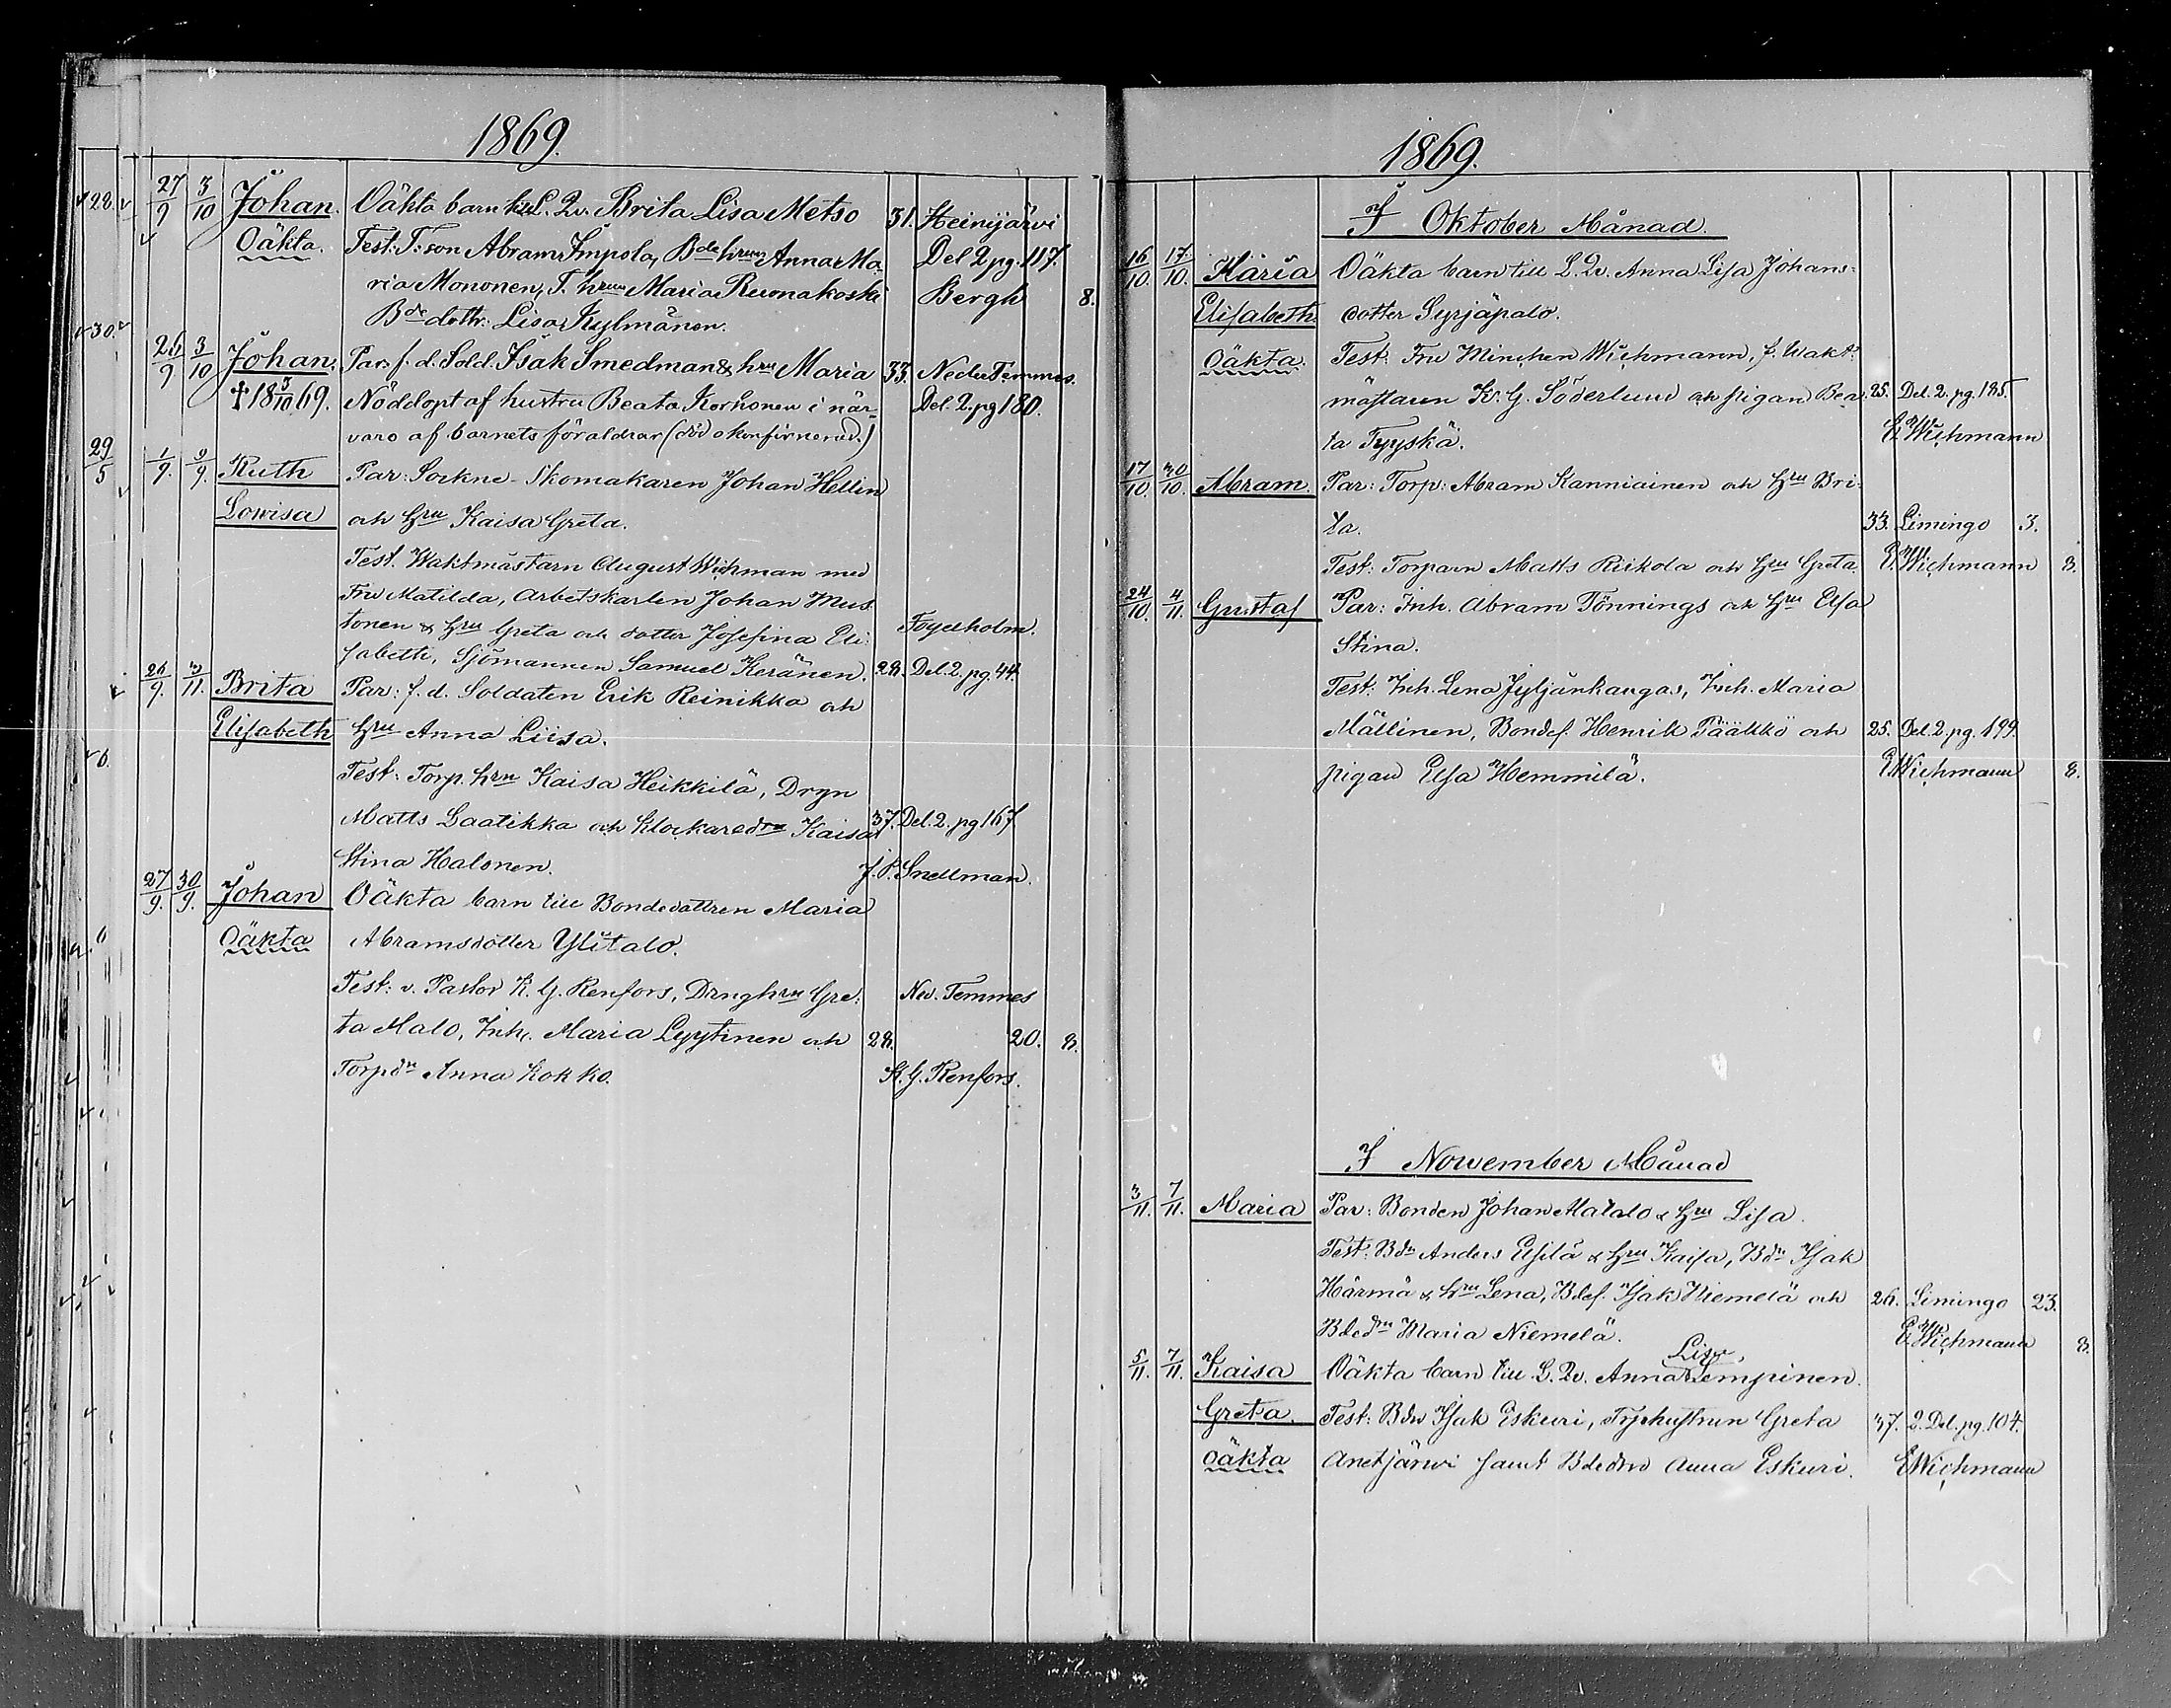 1869.
28. 27/9 3/10 Johan. Oäkta barn till L. Qv. Brita Lisa Metso 31. Heinijärvi
Oäkta. Test: T. son Abram Impola, Bde hrun Anna Ma- Del 2 pg. 117.
ria Mononen, T. hrun Maria Ruonakoski Bergh 8.
Bde dottr: Lisa Kylmänen.
30. 26/9 3/10 Johan. Par. f. d. Sold. Isak Smedman & hru Maria 33. Neder Temmes.
† 18 3/10 69. Nöddopt af hustru Beata Korhonen i när- Del. 2. pg 180.
varo af barnets föräldrar (död okonfirmerad.)
29/5 1/9. 9/9. Ruth Par: Sockne-Skomakaren Johan Hellin
Lowisa och Hru Kaisa Greta.
Test. Waktmästarn August Wichman med
Fru Matilda, Arbetskarlen Johan Mus-
tonen & Hru Greta och dotter Josefina Eli- Foyerholm.
sabeth, Sjömannen Samuel Keränen. 28. Del. 2. pg. 44.
26/9. 3/11. Brita Par: f. d. Soldaten Erik Reinikka och
Elisabeth Hru Anna Liisa.
6. Test: Torp. hru Kaisa Heikkilä, Drgn
Matts Laatikka och Klockaredtr Kaisa 37. Del. 2. pg 167.
Stina Halonen. J. P. Snellman.
27/9. 30/9. Johan Oäkta barn till Bondedottren Maria
Oäkta Abramsdotter Ylitalo.
Test: v. Pastor K. G. Renfors, Drnghru Gre- Ned. Temmes
ta Malo, Inh. Maria Lyytinen och 28. 20. 8.
Torpdr Anna Kokko. K. G. Renfors.
1869.
I Oktober Månad.
16/10. 17/10. Maria Oäkta barn till L. Qv. Anna Lisa Johans-
Elisabeth dotter Syrjäpalo.
Oäkta. Test: Fru Minchen Wichmann, f. Wakt-
mästaren K. G. Söderlund och pigan Bea- 25. Del. 2. pg. 185.
ta Tyyskä. E. Wichmann
17/10. 30/10. Abram. Par: Torp: Abram Kanniainen och Hru Bri-
ta. 33. Limingo 3.
Test: Torparn Matts Riikola och Hru Greta. E. Wichmann 8.
24/10. 4/11. Gustaf Par: Inh. Abram Tönnings och Hru Elsa
Stina.
Test: Inh. Lena Jyljänkangas, Inh. Maria
Mällinen, Bondes. Henrik Pääkkö och 25. Del. 2. pg. 199.
pigan Elsa Hemmilä. E. Wichmann 8.
I Nowember Månad
3/11. 7/11. Maria Par: Bonden Johan Matalo & Hru Lisa.
Test: Bdn Anders Elsilä & Hru Kaisa, Bdn Isak
Härmä & Hru Lena, Bdes. Isak Niemelä och 26. Limingo 23.
Bdedtr Maria Niemelä. E. Wichmann 8.
Lisa
5/11. 7/11. Kaisa Oäkta barn till L. Qv. Anna Lempinen.
Greta. Test: Bdn Isak Eskuri, Trphustrun Greta 37. 2. Del. pg. 104.
Oäkta Anetjärwi samt Bdedtr Anna Eskuri. E Wichmann